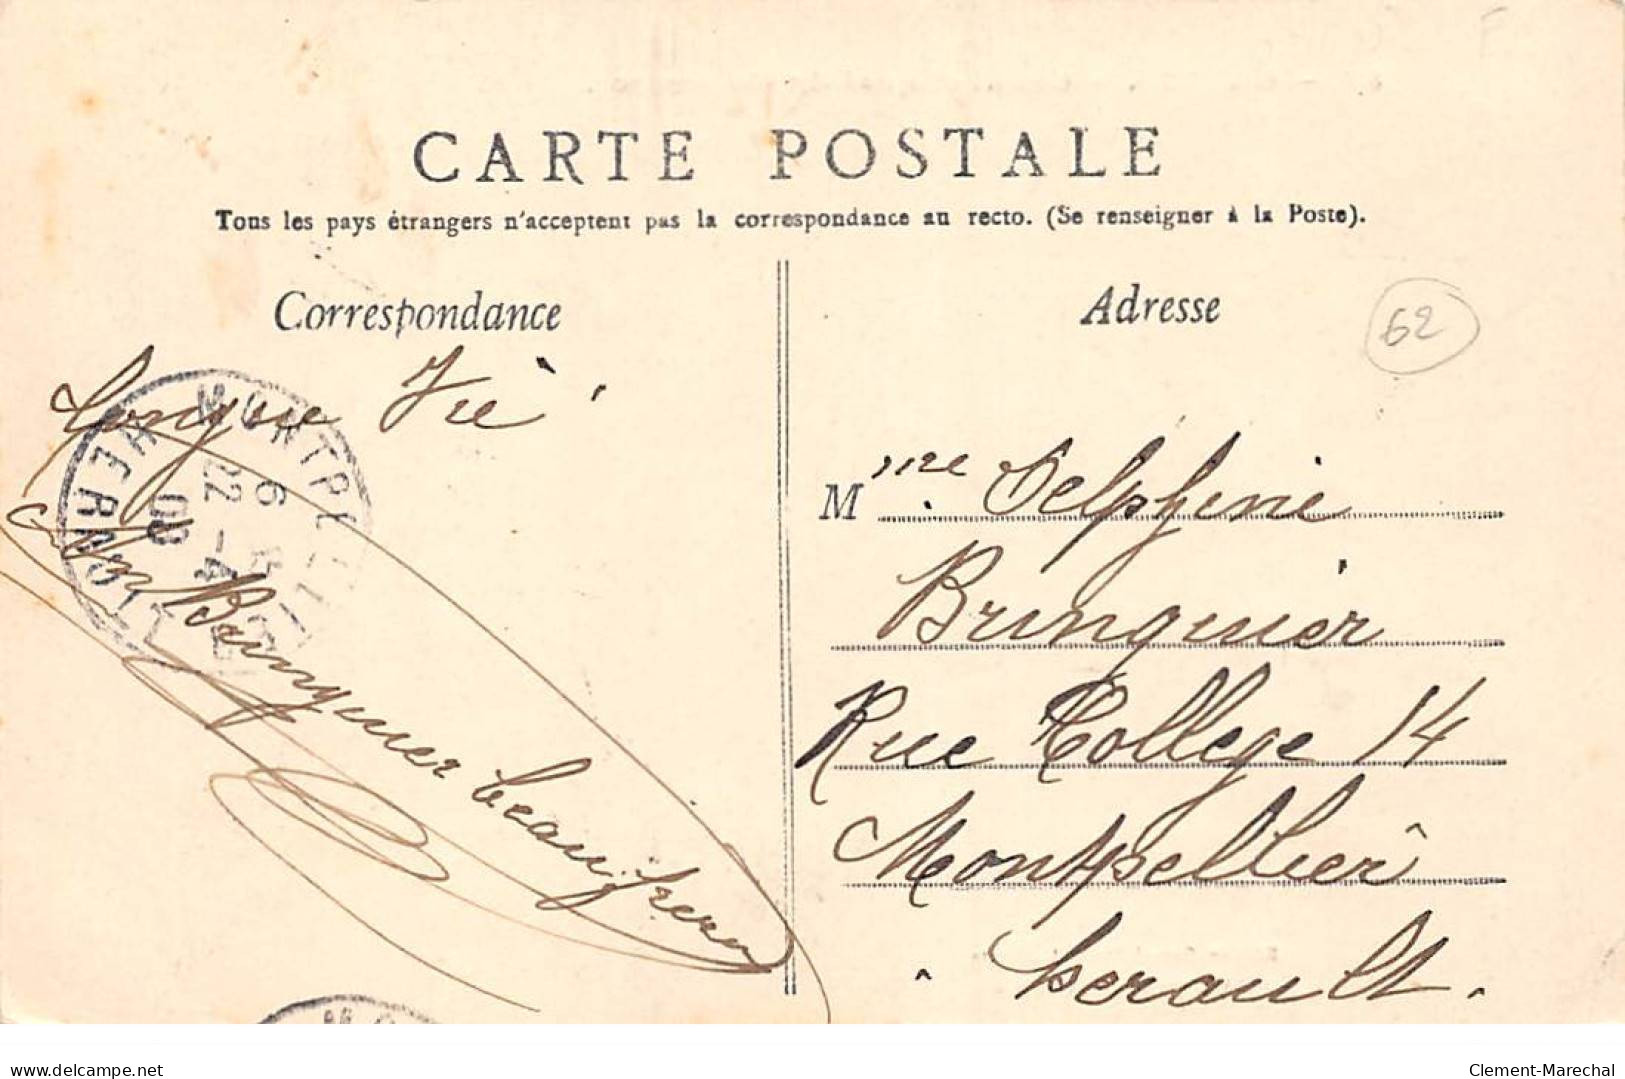 F
CARTE POSTALE
Tous les pays étrangers n'acceptent pas la correspondance au recto. (Se renseigner à la Poste).
Correspondance
Longue Vie
Bringuier beau frere
MONTPELLIER
HERAULT
6
22 -4
09
Adresse
62
Mme Delphine
Bringuier
Rue College 14
Montpellier
herault.
www.delcampe.net
Clement-Marechal